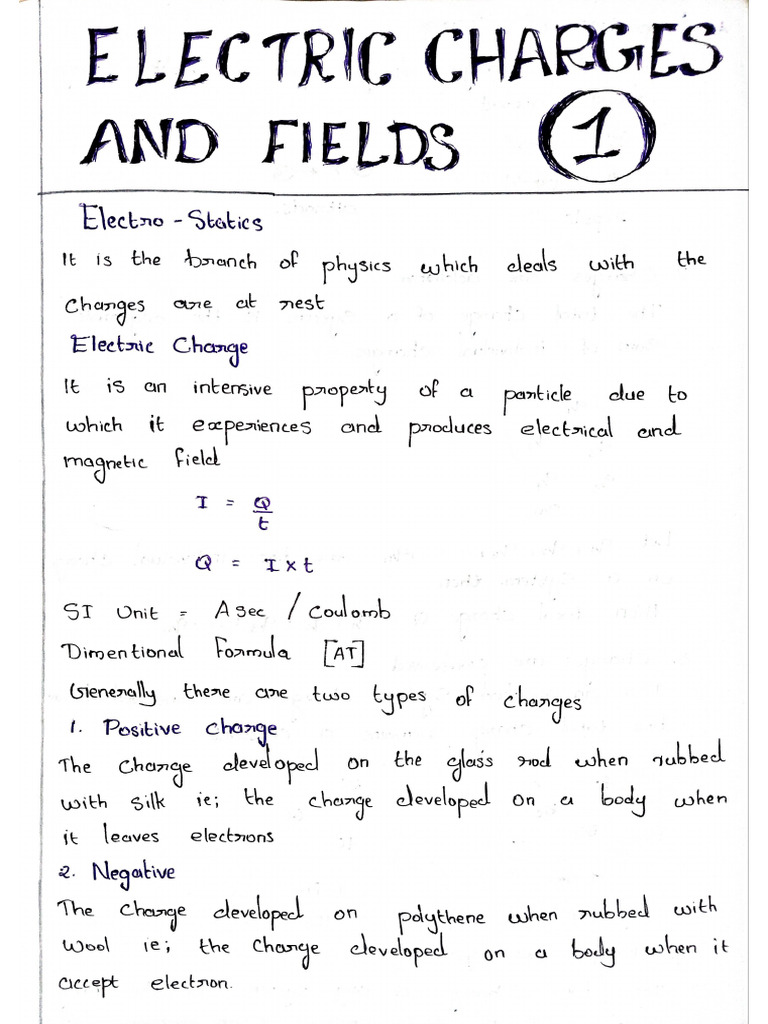 ELECTRIC CHARGES
AND FIELDS 1
Electro - Statics
It is the branch of physics which deals with the
charges are at rest
Electric Charge
It is an intensive property of a particle due to
which it experiences and produces electrical and
magnetic field
I = Q/t
Q = I × t
SI Unit = A sec / Coulomb
Dimentional Formula [AT]
Generally there are two types of charges
1. Positive charge
The charge developed on the glass rod when rubbed
with silk ie; the charge developed on a body when
it leaves electrons
2. Negative
The charge developed on polythene when rubbed with
wool ie; the charge developed on a body when it
accept electron.